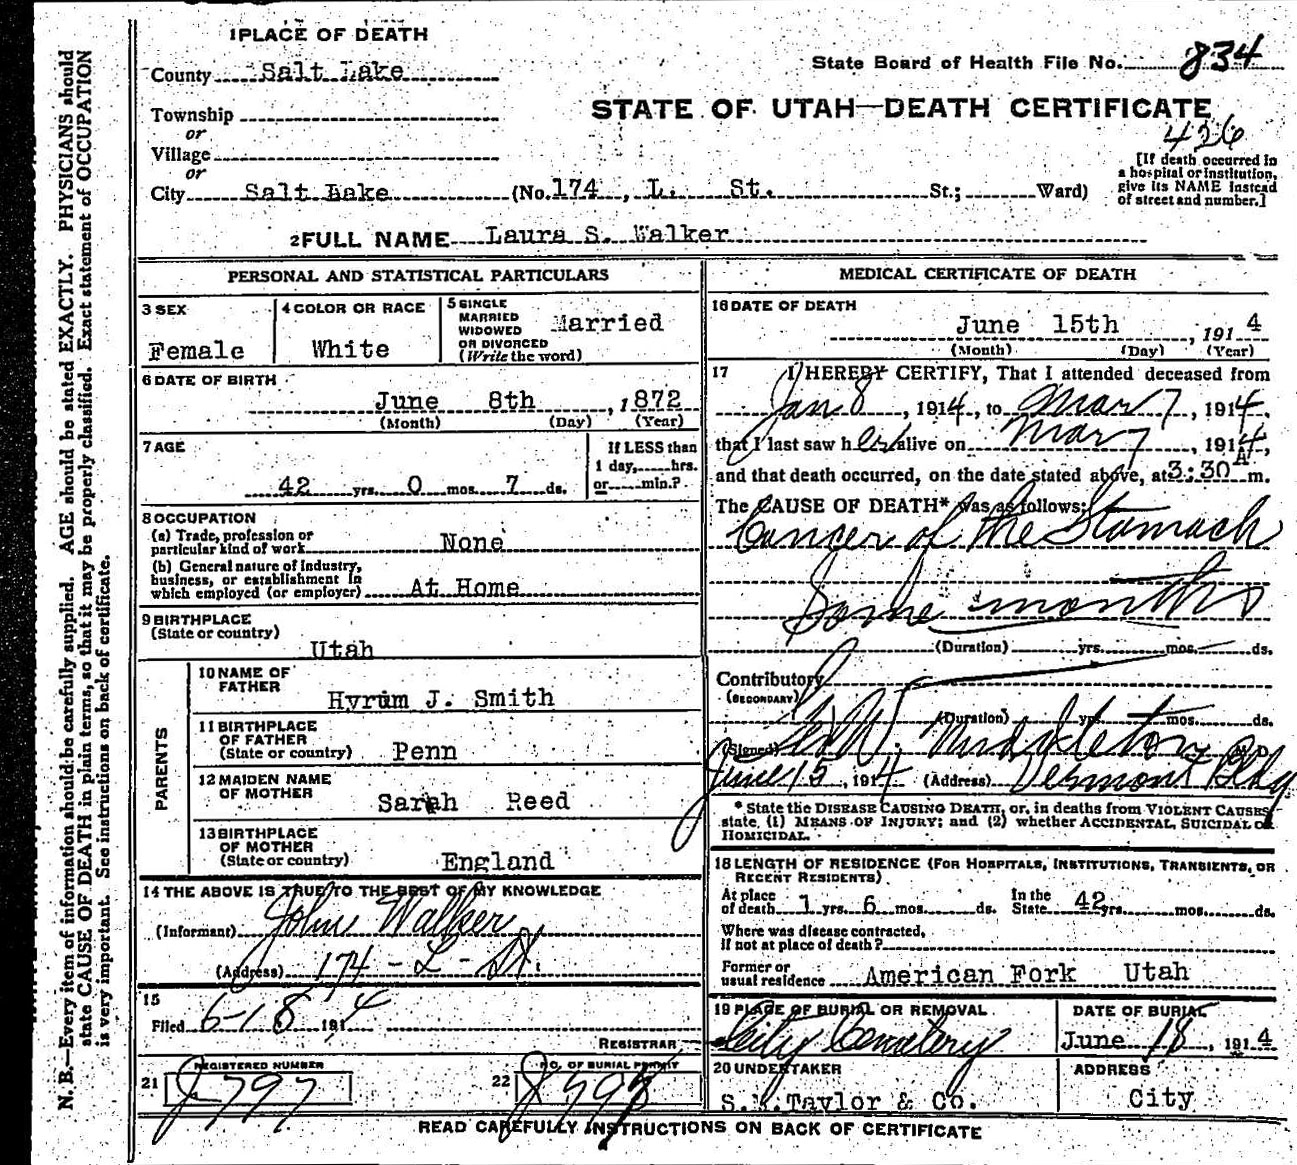 1 PLACE OF DEATH
County Salt Lake
State Board of Health File No. 834
Township
or
Village
or
City Salt Lake (No. 174, L. St. St.; Ward)
STATE OF UTAH—DEATH CERTIFICATE
426
[If death occurred in
a hospital or institution,
give its NAME instead
of street and number.]
2 FULL NAME Laura S. Walker
PERSONAL AND STATISTICAL PARTICULARS
3 SEX
Female
4 COLOR OR RACE
White
5 SINGLE
MARRIED
WIDOWED
OR DIVORCED
(Write the word)
Married
6 DATE OF BIRTH
June 8th, 1872
(Month) (Day) (Year)
7 AGE
42 yrs. 0 mos. 7 ds.
If LESS than
1 day, hrs.
or min.?
8 OCCUPATION
(a) Trade, profession or
particular kind of work None
(b) General nature of industry,
business, or establishment in
which employed (or employer) At Home
9 BIRTHPLACE
(State or country)
Utah
PARENTS
10 NAME OF
FATHER
Hyrum J. Smith
11 BIRTHPLACE
OF FATHER
(State or country) Penn
12 MAIDEN NAME
OF MOTHER
Sarah Reed
13 BIRTHPLACE
OF MOTHER
(State or country) England
14 THE ABOVE IS TRUE TO THE BEST OF MY KNOWLEDGE
(Informant) John Walker
(Address) 174 - L - St.
15
Filed 6-18 1914
REGISTRAR
REGISTERED NUMBER
21 J797
NO. OF BURIAL PERMIT
22
MEDICAL CERTIFICATE OF DEATH
16 DATE OF DEATH
June 15th, 1914
(Month) (Day) (Year)
17 I HEREBY CERTIFY, That I attended deceased from
Jan 8, 1914, to Mar 7, 1914,
that I last saw her alive on Mar 7, 1914,
and that death occurred, on the date stated above, at 3:30 A m.
The CAUSE OF DEATH* was as follows:
Cancer of the Stomach
Some months
(Duration) yrs. mos. ds.
Contributory
(SECONDARY)
(Duration) yrs. mos. ds.
(Signed) Middleton M D
June 15, 1914 (Address) Vermont Bldg
* State the DISEASE CAUSING DEATH, or, in deaths from VIOLENT CAUSES
state, (1) MEANS OF INJURY; and (2) whether ACCIDENTAL, SUICIDAL OR
HOMICIDAL.
18 LENGTH OF RESIDENCE (FOR HOSPITALS, INSTITUTIONS, TRANSIENTS, OR
RECENT RESIDENTS)
At place
of death 1 yrs. 6 mos. ds.
In the
State 42 yrs. mos. ds.
Where was disease contracted,
if not at place of death?
Former or
usual residence American Fork Utah
19 PLACE OF BURIAL OR REMOVAL
City Cemetery
DATE OF BURIAL
June 18, 1914
20 UNDERTAKER
S.M. Taylor & Co.
ADDRESS
City
READ CAREFULLY INSTRUCTIONS ON BACK OF CERTIFICATE
N. B.—Every item of information should be carefully supplied. AGE should be stated EXACTLY. PHYSICIANS should
state CAUSE OF DEATH in plain terms, so that it may be properly classified. Exact statement of OCCUPATION
is very important. See instructions on back of certificate.